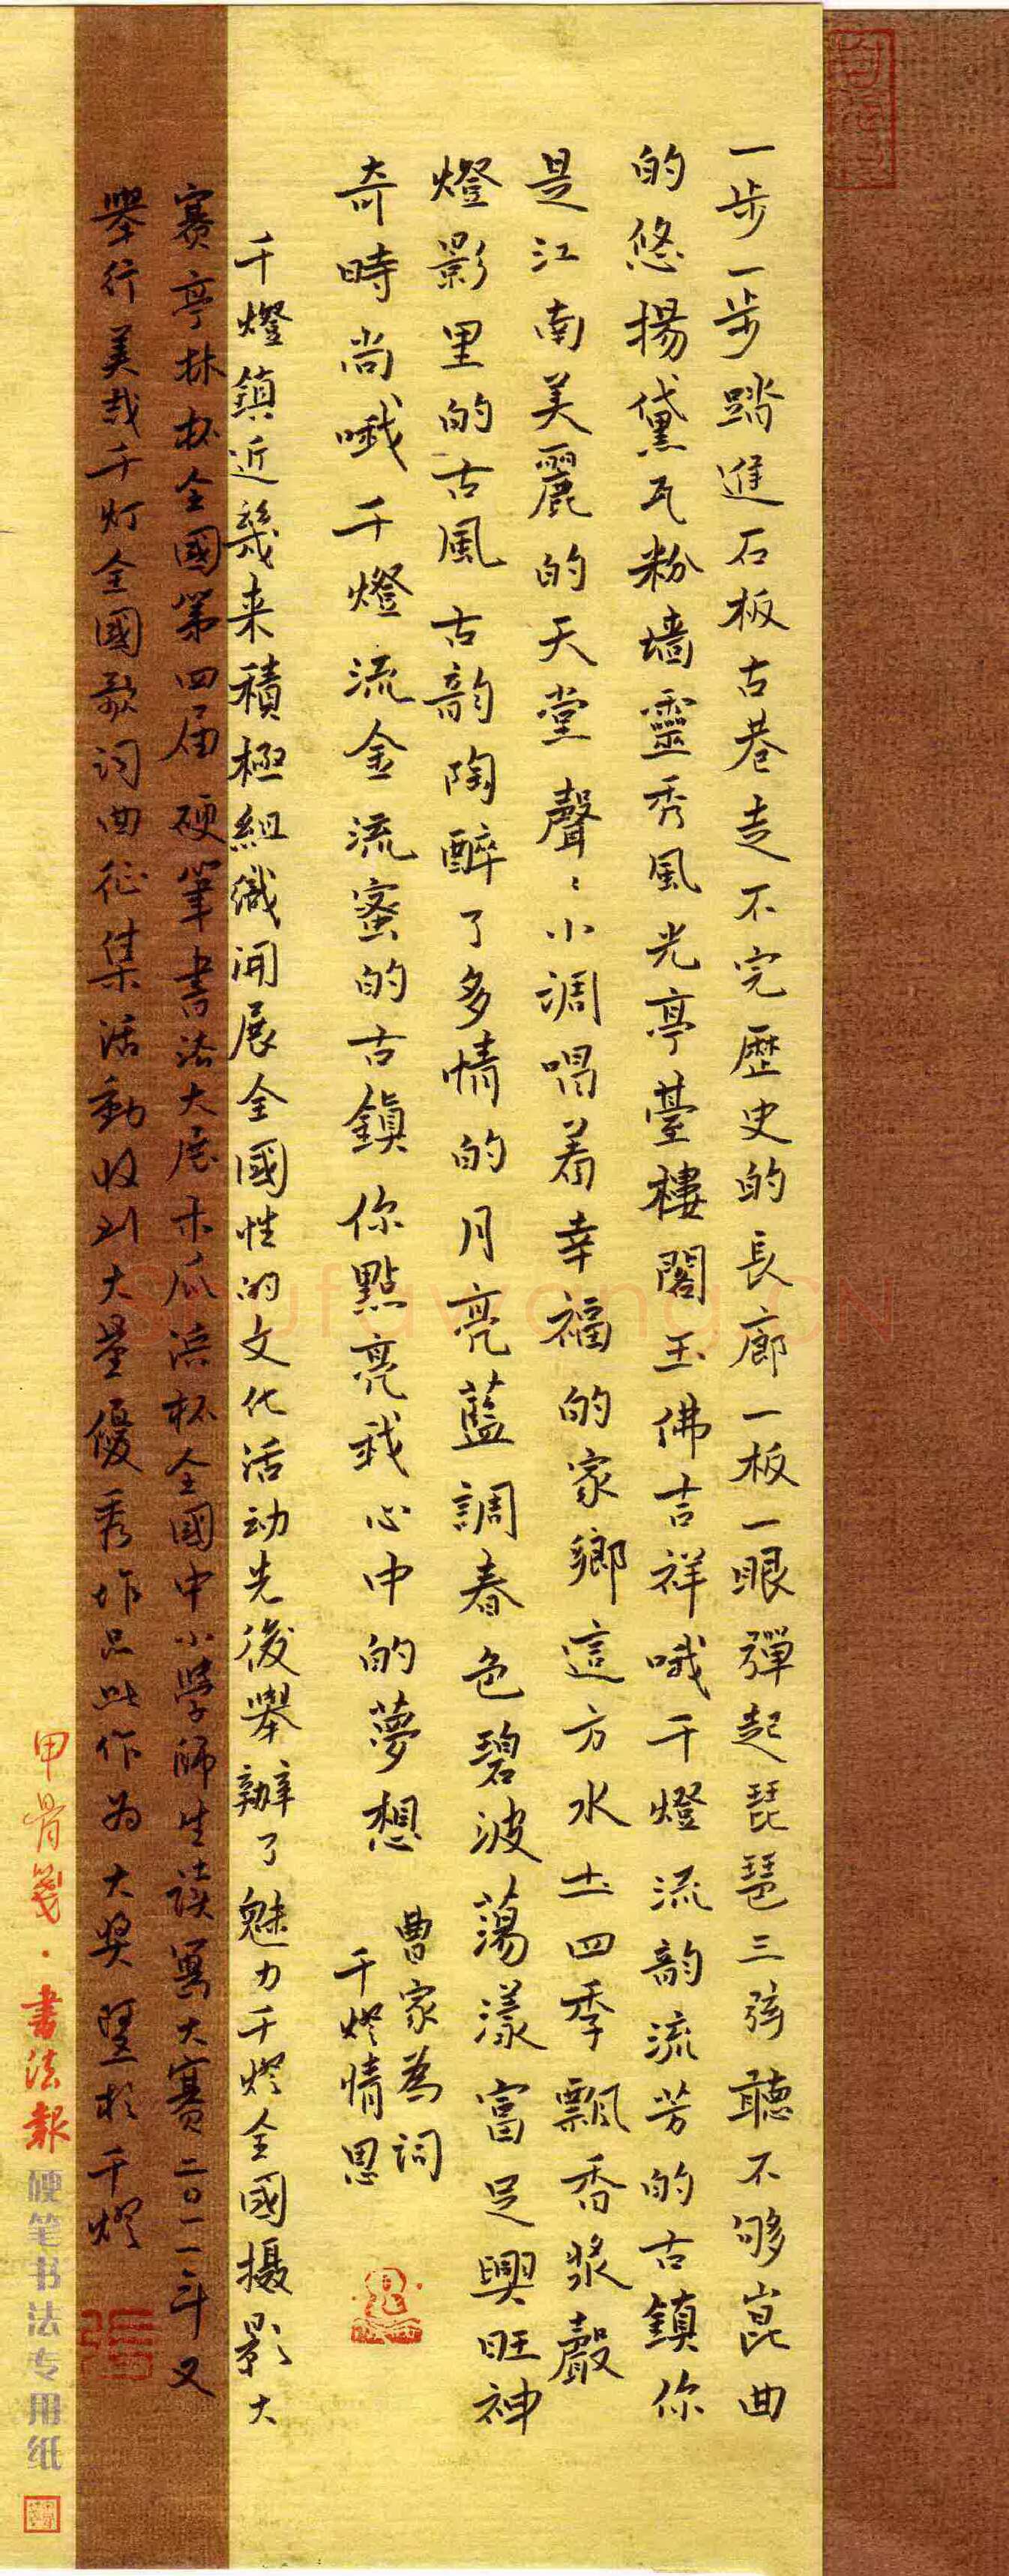 一步一步踏進石板古巷走不完歷史的長廊一板一眼彈起琵琶三弦聽不够崑曲
的悠揚黛瓦粉墙靈秀風光亭臺樓閣玉佛吉祥哦千燈流韵流芳的古鎮你
是江南美麗的天堂聲聲小調唱着幸福的家鄉這方水土四季飄香漿聲
燈影里的古風古韵陶醉了多情的月亮藍調春色碧波蕩漾富足興旺神
奇時尚哦千燈流金流蜜的古鎮你點亮我心中的夢想
曹家為詞
千燈情思
千燈鎮近幾来積極組織開展全國性的文化活动先後舉辦了魅力千燈全國攝影大
賽亭林杯全國第四届硬筆書法大展木瓜浜杯全國中小學師生读寫大賽二〇一一年又
舉行美哉千灯全國歌词曲征集活動收到大量優秀作品此作为大奖竖於千燈
甲骨箋·書法報
硬笔书法专用纸
shufawang.CN